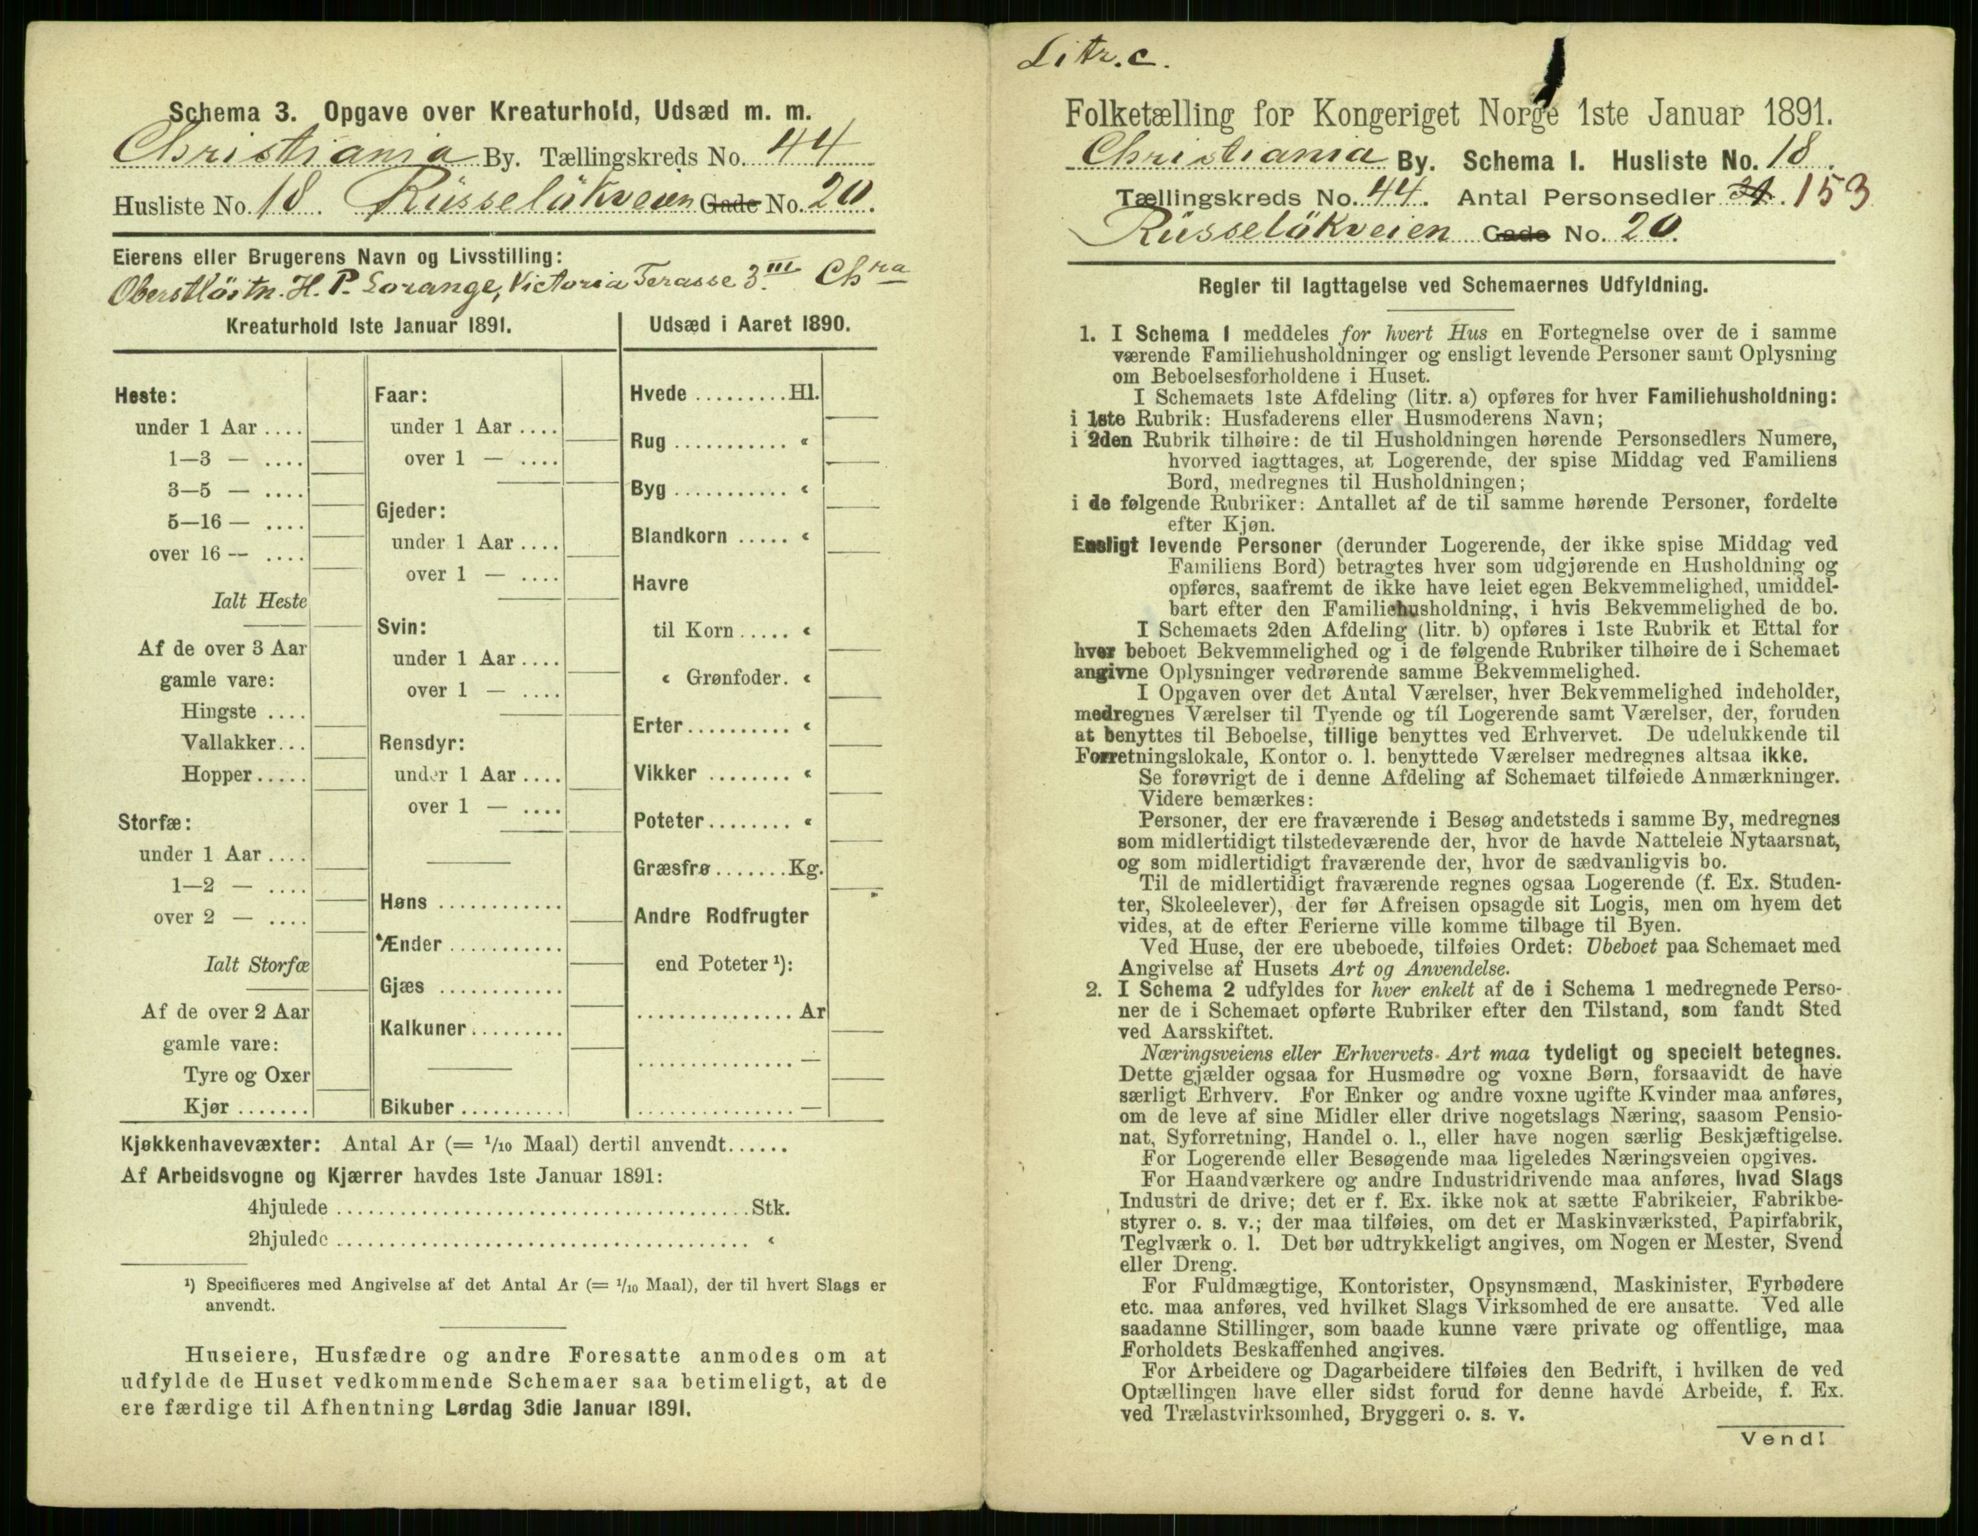 Schema 3. Opgave over Kreaturhold, Udsæd m. m.
Christiania By. Tællingskreds No. 44
Husliste No. 18. Rüsseløkveien Gade No. 20.
Eierens eller Brugerens Navn og Livsstilling:
Oberstløitn. H. P. Lorange, Victoria Terasse 3 III Chra
Kreaturhold 1ste Januar 1891.
Heste:
under 1 Aar ....
1—3 — ....
3—5 — ....
5—16 — ....
over 16 — ....
Ialt Heste
Af de over 3 Aar
gamle vare:
Hingste ....
Vallakker...
Hopper.....
Storfæ:
under 1 Aar ....
1—2 — ....
over 2 — ....
Ialt Storfæ
Af de over 2 Aar
gamle vare:
Tyre og Oxer
Kjør .......
Faar:
under 1 Aar ....
over 1 — ....
Gjeder:
under 1 Aar ....
over 1 — ....
Svin:
under 1 Aar ....
over 1 — ....
Rensdyr:
under 1 Aar ....
over 1 — ....
Høns ............
Ænder ...........
Gjæs ............
Kalkuner.........
Bikuber ..........
Udsæd i Aaret 1890.
Hvede .........Hl.
Rug ........... «
Byg ........... «
Blandkorn ..... «
Havre
til Korn ..... «
« Grønfoder. «
Erter.......... «
Vikker ........ «
Poteter........ «
Græsfrø.......Kg.
Andre Rodfrugter
end Poteter ¹):
............... Ar
............... —
............... —
Kjøkkenhavevæxter: Antal Ar (= 1/10 Maal) dertil anvendt......
Af Arbeidsvogne og Kjærrer havdes 1ste Januar 1891:
4hjulede ........................................Stk.
2hjulede ........................................ «
¹) Specificeres med Angivelse af det Antal Ar (= 1/10 Maal), der til hvert Slags er
anvendt.
Huseiere, Husfædre og andre Foresatte anmodes om at
udfylde de Huset vedkommende Schemaer saa betimeligt, at de
ere færdige til Afhentning Lørdag 3die Januar 1891.
Litr. c.
Folketælling for Kongeriget Norge 1ste Januar 1891.
Christiania By. Schema 1. Husliste No. 18.
Tællingskreds No. 44. Antal Personsedler . 153
Rüsseløkveien Gade No. 20.
Regler til Iagttagelse ved Schemaernes Udfyldning.
1. I Schema 1 meddeles for hvert Hus en Fortegnelse over de i samme
værende Familiehusholdninger og ensligt levende Personer samt Oplysning
om Beboelsesforholdene i Huset.
I Schemaets 1ste Afdeling (litr. a) opføres for hver Familiehusholdning:
i 1ste Rubrik: Husfaderens eller Husmoderens Navn;
i 2den Rubrik tilhøire: de til Husholdningen hørende Personsedlers Numere,
hvorved iagttages, at Logerende, der spise Middag ved Familiens
Bord, medregnes til Husholdningen;
i de følgende Rubriker: Antallet af de til samme hørende Personer, fordelte
efter Kjøn.
Ensligt levende Personer (derunder Logerende, der ikke spise Middag ved
Familiens Bord) betragtes hver som udgjørende en Husholdning og
opføres, saafremt de ikke have leiet egen Bekvemmelighed, umiddel-
bart efter den Familiehusholdning, i hvis Bekvemmelighed de bo.
I Schemaets 2den Afdeling (litr. b) opføres i 1ste Rubrik et Ettal for
hver beboet Bekvemmelighed og i de følgende Rubriker tilhøire de i Schemaet
angivne Oplysninger vedrørende samme Bekvemmelighed.
I Opgaven over det Antal Værelser, hver Bekvemmelighed indeholder,
medregnes Værelser til Tyende og til Logerende samt Værelser, der, foruden
at benyttes til Beboelse, tillige benyttes ved Erhvervet. De udelukkende til
Forretningslokale, Kontor o. l. benyttede Værelser medregnes altsaa ikke.
Se forøvrigt de i denne Afdeling af Schemaet tilføiede Anmærkninger.
Videre bemærkes:
Personer, der ere fraværende i Besøg andetsteds i samme By, medregnes
som midlertidigt tilstedeværende der, hvor de havde Natteleie Nytaarsnat,
og som midlertidigt fraværende der, hvor de sædvanligvis bo.
Til de midlertidigt fraværende regnes ogsaa Logerende (f. Ex. Studen-
ter, Skoleelever), der før Afreisen opsagde sit Logis, men om hvem det
vides, at de efter Ferierne ville komme tilbage til Byen.
Ved Huse, der ere ubeboede, tilføies Ordet: Ubeboet paa Schemaet med
Angivelse af Husets Art og Anvendelse.
2. I Schema 2 udfyldes for hver enkelt af de i Schema 1 medregnede Perso-
ner de i Schemaet opførte Rubriker efter den Tilstand, som fandt Sted
ved Aarsskiftet.
Næringsveiens eller Erhvervets Art maa tydeligt og specielt betegnes.
Dette gjælder ogsaa for Husmødre og voxne Børn, forsaavidt de have
særligt Erhverv. For Enker og andre voxne ugifte Kvinder maa anføres,
om de leve af sine Midler eller drive nogetslags Næring, saasom Pensio-
nat, Syforretning, Handel o. l., eller have nogen særlig Beskjæftigelse.
For Logerende eller Besøgende maa ligeledes Næringsveien opgives.
For Haandværkere og andre Industridrivende maa anføres, hvad Slags
Industri de drive; det er f. Ex. ikke nok at sætte Fabrikeier, Fabrikbe-
styrer o. s. v.; der maa tilføies, om det er Maskinværksted, Papirfabrik,
Teglværk o. l. Det bør udtrykkeligt angives, om Nogen er Mester, Svend
eller Dreng.
For Fuldmægtige, Kontorister, Opsynsmænd, Maskinister, Fyrbødere
etc. maa anføres, ved hvilket Slags Virksomhed de ere ansatte. Ved alle
saadanne Stillinger, som baade kunne være private og offentlige, maa
Forholdets Beskaffenhed angives.
For Arbeidere og Dagarbeidere tilføies den Bedrift, i hvilken de ved
Optællingen have eller sidst forud for denne havde Arbeide, f. Ex.
ved Trælastvirksomhed, Bryggeri o. s. v.
Vend!